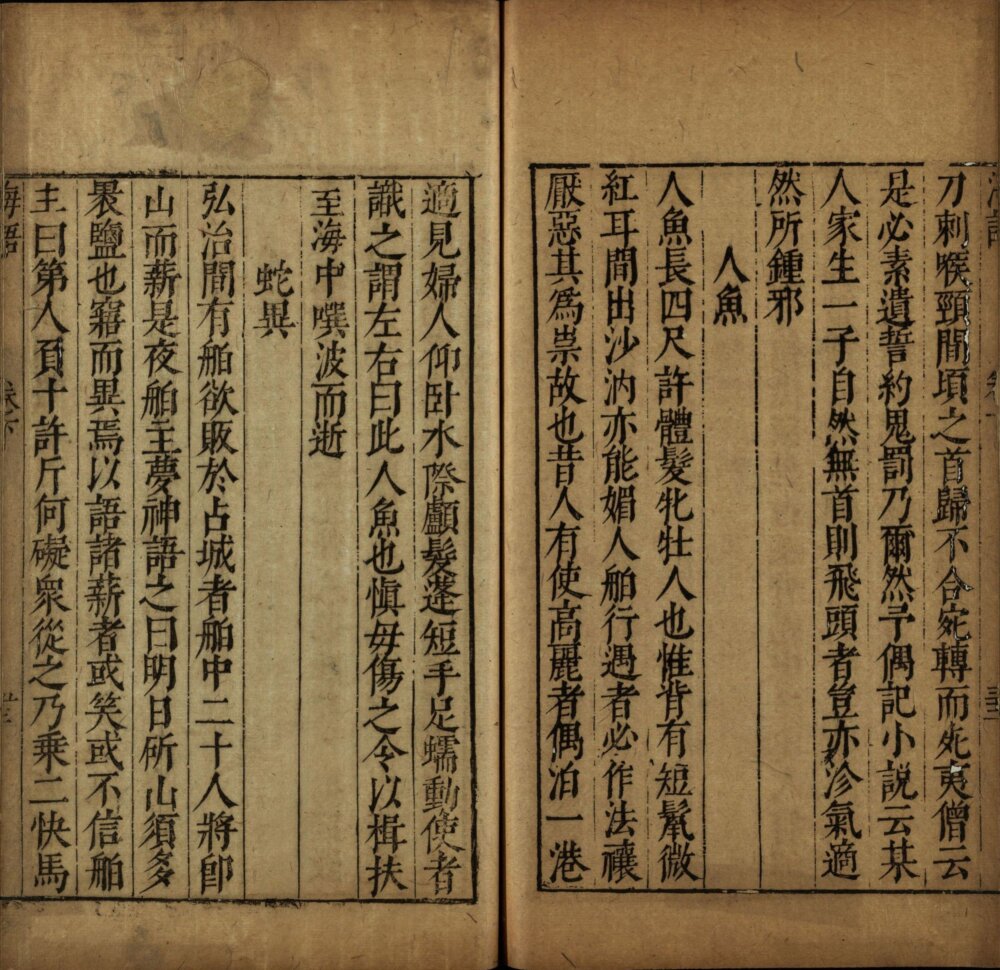 刀刺喉頸間頃之首歸不合宛轉而死夷僧云
是必素遺誓約鬼罰乃爾然予偶記小説云某
人家生一子自然無首則飛頭者豈亦沴氣適
然所鍾邪
人魚
人魚長四尺許體髮牝牡人也惟背有短鬣微
紅耳間出沙汭亦能媚人舶行遇者必作法禳
厭惡其爲祟故也昔人有使高麗者偶泊一港
適見婦人仰卧水際顱髮蓬短手足蠕動使者
識之謂左右曰此人魚也慎毋傷之令以楫扶
至海中噀波而逝
蛇異
弘治間有舶欲販於占城者舶中二十人將卽
山而薪是夜舶主夢神語之曰明日斫山須多
褁鹽也寤而異焉以語諸薪者或笑或不信舶
主曰第人負十許斤何礙衆從之乃乘二快馬
海語 卷下